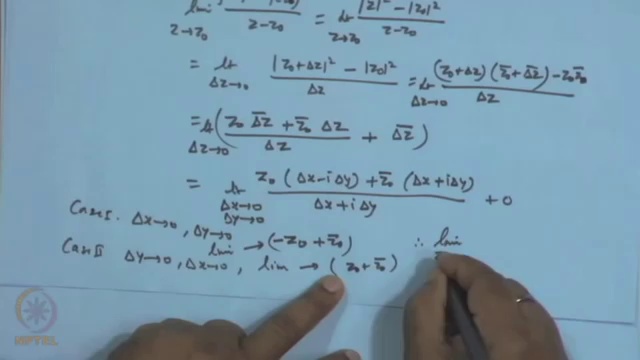 lim z→z₀ z-z₀ = lt z→z₀ |z|² - |z₀|² / z-z₀
= lt Δz→0 |z₀+Δz|² - |z₀|² / Δz = lt Δz→0 (z₀+Δz)(z̄₀+Δ̄z̄) - z₀z̄₀ / Δz
= lt Δz→0 (z₀ Δ̄z̄ + z̄₀ Δz / Δz + Δ̄z̄)
= lt Δx→0 Δy→0 z₀(Δx-iΔy) + z̄₀(Δx+iΔy) / Δx+iΔy + 0
Case I. Δx→0, Δy→0 lim → (-z₀+z̄₀)
Case II Δy→0, Δx→0, lim → (z₀+z̄₀) ∴ lim
NPTEL